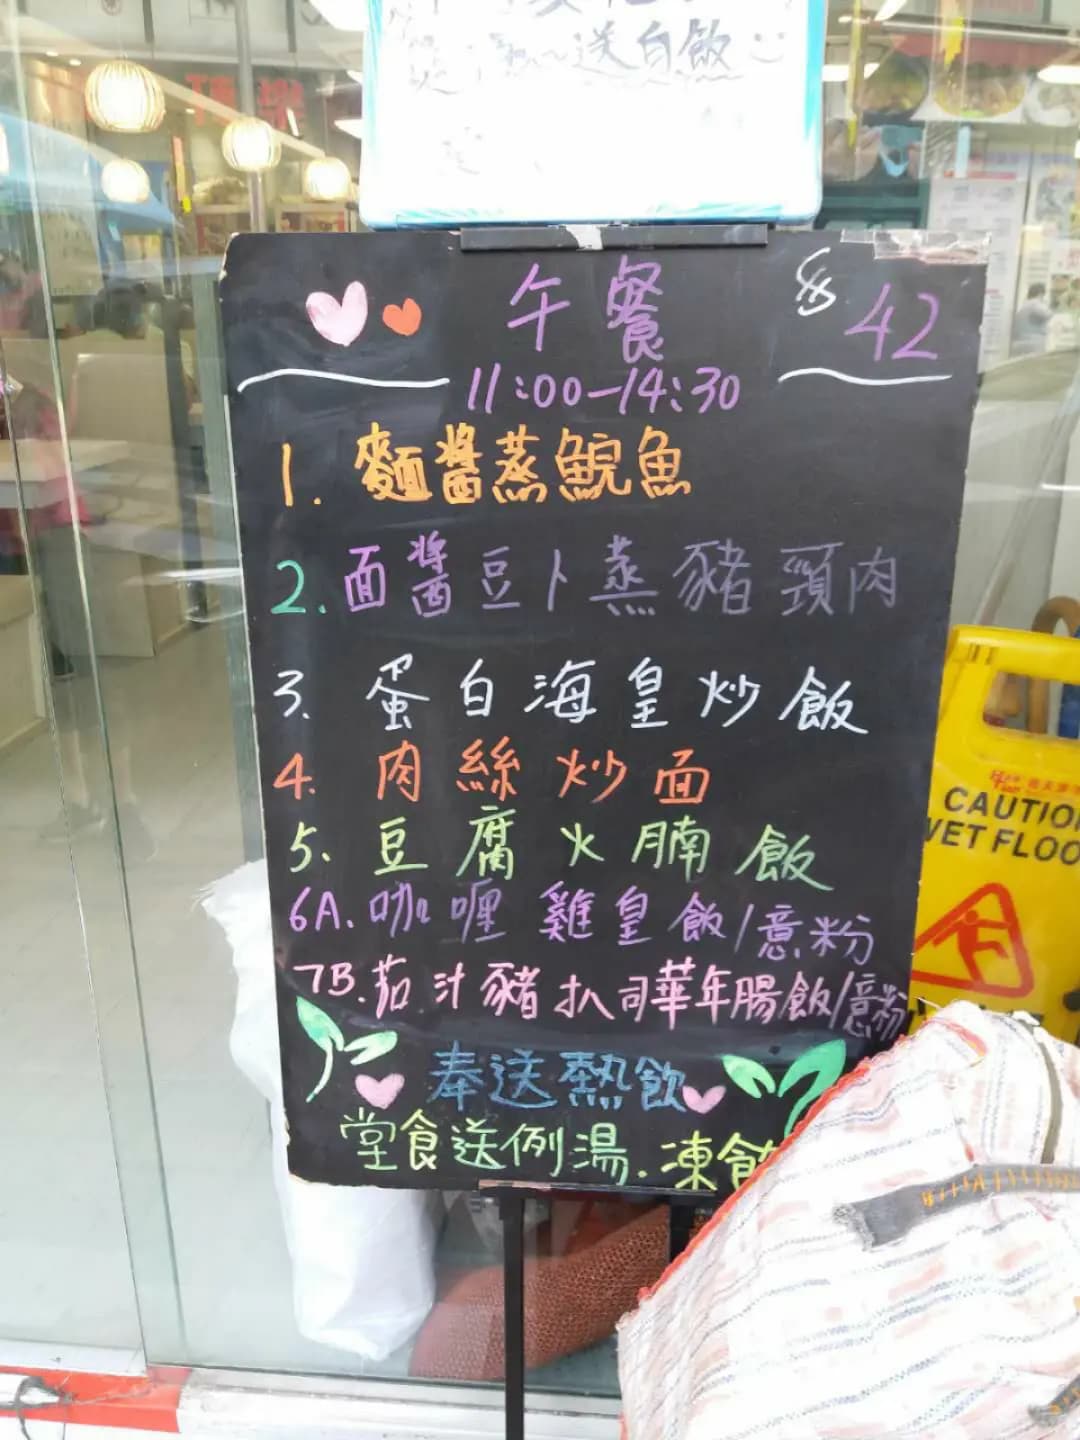 送白飯
午餐 $42
11:00-14:30
1. 麵醬蒸鯇魚
2. 面醬豆卜蒸豬頸肉
3. 蛋白海皇炒飯
4. 肉絲炒面
5. 豆腐火腩飯
6A. 咖喱雞皇飯/意粉
7B. 茄汁豬扒司華年腸飯/意粉
奉送熱飲
堂食送例湯.凍飲
CAUTION
WET FLOO